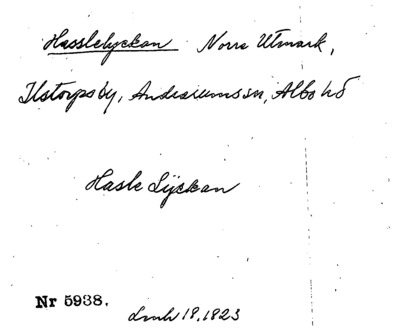 Hasslelyckan Norra Utmark,
Ilstorps by, Andrarums sn, Albo hd
Hasle Lÿckan
Nr 5938.
Lmh 18, 1823